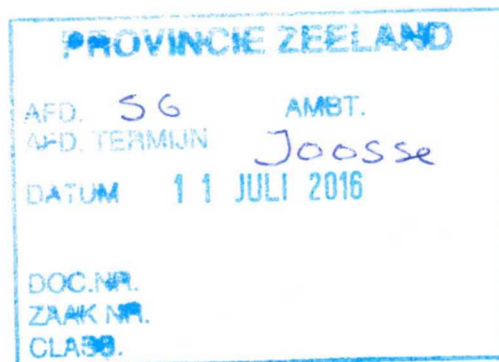 PROVINCIE ZEELAND
AFD. SG AMBT.
AFD. TERMIJN Joosse
DATUM 11 JULI 2016
DOC.NR.
ZAAK NR.
CLASS.